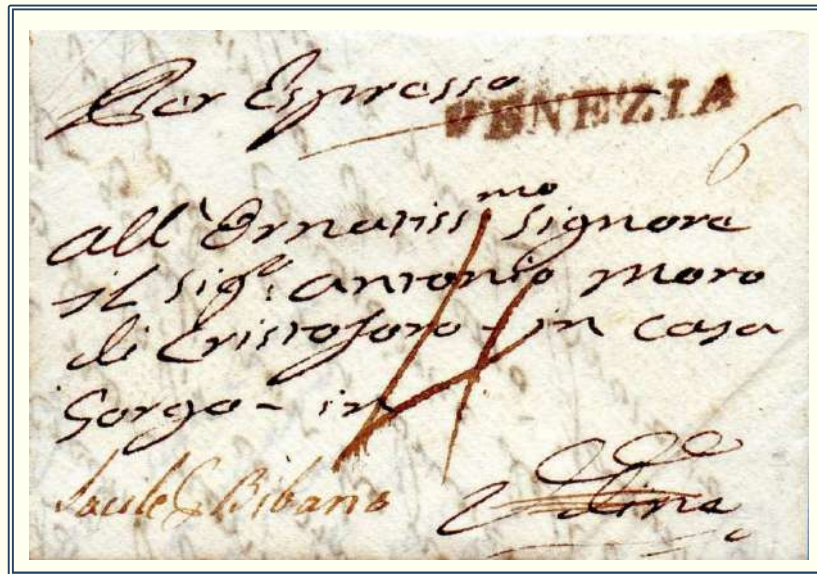 Per Espresso
VENEZIA
6
all' Ornatiss.mo signore
il sig.r Antonio Moro
di Cristoforo - in casa
Gorgo - in
4
Sacile & Bibano
Udine